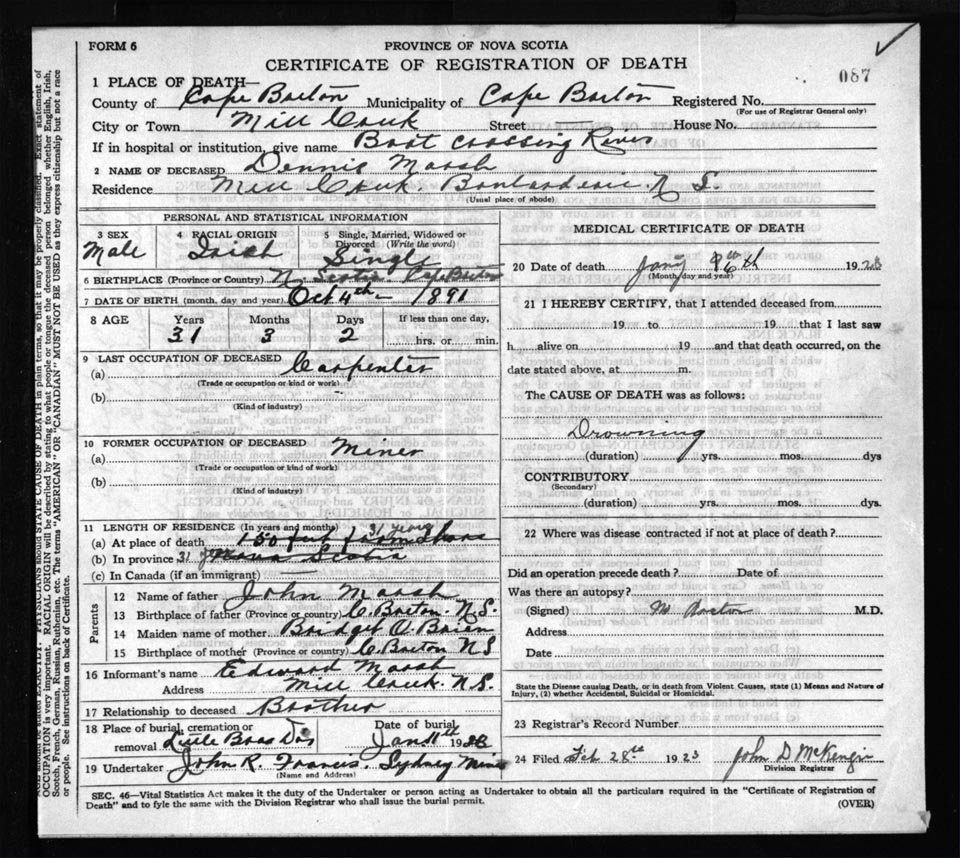 FORM 6
PROVINCE OF NOVA SCOTIA
CERTIFICATE OF REGISTRATION OF DEATH
087
1 PLACE OF DEATH—
County of Cape Breton Municipality of Cape Breton Registered No.
(For use of Registrar General only)
City or Town Mill Creek Street House No.
If in hospital or institution, give name Boat Crossing River
2 NAME OF DECEASED Dennis Marsh
Residence Mill Creek. Boulardarie. N S.
(Usual place of abode)
PERSONAL AND STATISTICAL INFORMATION
3 SEX Male
4 RACIAL ORIGIN Irish
5 Single, Married, Widowed or Divorced (Write the word) Single
6 BIRTHPLACE (Province or Country) N. Scotia Cape Breton
7 DATE OF BIRTH (month, day and year) Oct 4th 1891
8 AGE Years Months Days If less than one day,
31 3 2 hrs. or min.
9 LAST OCCUPATION OF DECEASED
(a) Carpenter
(Trade or occupation or kind or work)
(b)
(Kind of industry)
10 FORMER OCCUPATION OF DECEASED
(a) Miner
(Trade or occupation or kind or work)
(b)
(Kind of industry)
11 LENGTH OF RESIDENCE (In years and months) 31 years
(a) At place of death 150 feet from Shore
(b) In province 31 yrs Nova Scotia
(c) In Canada (if an immigrant)
Parents
12 Name of father John Marsh
13 Birthplace of father (Province or country) C. Breton. N.S.
14 Maiden name of mother Bridget O Brien
15 Birthplace of mother (Province or country) C. Breton N S
16 Informant's name Edward Marsh
Address Mill Creek. N.S.
17 Relationship to deceased Brother
18 Place of burial, cremation or removal Little Bras Dor
Date of burial Jan 11th 1923
19 Undertaker John R Francis. Sydney Mines
(Name and Address)
MEDICAL CERTIFICATE OF DEATH
20 Date of death Jany 6th 1923
(Month, day and year)
21 I HEREBY CERTIFY, that I attended deceased from
19 to 19 that I last saw
h alive on 19 and that death occurred, on the
date stated above, at m.
The CAUSE OF DEATH was as follows:
Drowning
(duration) yrs. mos. dys
CONTRIBUTORY
(Secondary)
(duration) yrs. mos. dys.
22 Where was disease contracted if not at place of death?
Did an operation precede death? Date of
Was there an autopsy?
(Signed) M.D.
Address
Date
State the Disease causing Death, or in death from Violent Causes, state (1) Means and Nature of
Injury, (2) whether Accidental, Suicidal or Homicidal.
23 Registrar's Record Number
24 Filed Feb 28th 1923 John D McKenzie
Division Registrar
SEC. 46—Vital Statistics Act makes it the duty of the Undertaker or person acting as Undertaker to obtain all the particulars required in the "Certificate of Registration of
Death" and to fyle the same with the Division Registrar who shall issue the burial permit.
(OVER)
PHYSICIANS should STATE CAUSE OF DEATH in plain terms, so that it may be properly classified. Exact statement of
OCCUPATION is very important. RACIAL ORIGIN will be described by stating to what people or tongue the deceased person belonged whether English, Irish,
Scotch, French, German, Russian, Ruthenian, etc. The terms "AMERICAN" OR "CANADIAN" MUST NOT BE USED as they express citizenship but not a race
or people. See instructions on back of Certificate.